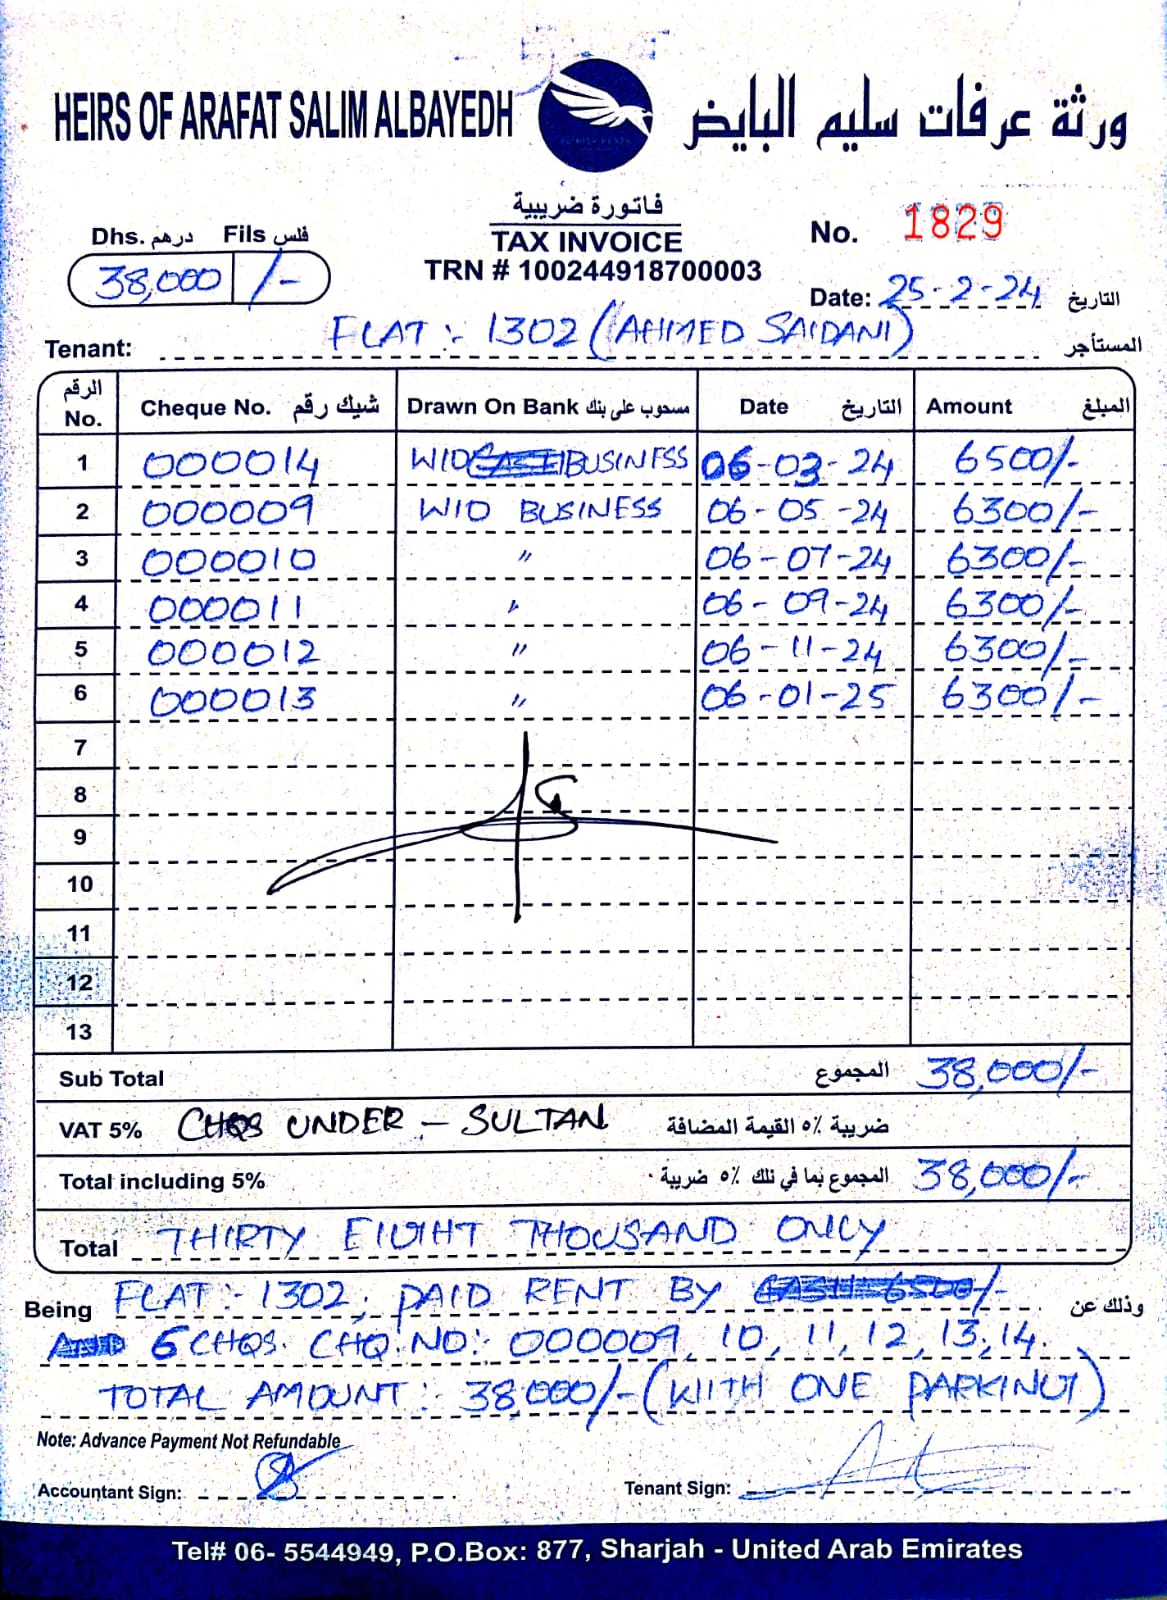 HEIRS OF ARAFAT SALIM ALBAYEDH ورثة عرفات سليم البايض
فاتورة ضريبية
TAX INVOICE
TRN # 100244918700003
Dhs. درهم Fils فلس
38,000 /-
No. 1829
Date: 25-2-24 التاريخ
Tenant: FLAT:- 1302 (AHMED SAIDANI) المستأجر
الرقم No. Cheque No. شيك رقم Drawn On Bank مسحوب على بنك Date التاريخ Amount المبلغ
1 000014 WIO BUSINESS 06-03-24 6500/-
2 000009 WIO BUSINESS 06-05-24 6300/-
3 000010 〃 06-07-24 6300/-
4 000011 〃 06-09-24 6300/-
5 000012 〃 06-11-24 6300/-
6 000013 〃 06-01-25 6300/-
7
8
9
10
11
12
13
Sub Total المجموع 38,000/-
VAT 5% CHQS UNDER - SULTAN ضريبة ٥٪ القيمة المضافة
Total including 5% المجموع بما في ذلك ٥٪ ضريبة 38,000/-
Total THIRTY EIGHT THOUSAND ONLY
Being FLAT:- 1302, PAID RENT BY CASH 6500/- وذلك عن
AND 6 CHQS. CHQ.NO:- 000009, 10, 11, 12, 13, 14.
TOTAL AMOUNT:- 38,000/- (WITH ONE PARKING)
Note: Advance Payment Not Refundable
Accountant Sign: Tenant Sign:
Tel# 06- 5544949, P.O.Box: 877, Sharjah - United Arab Emirates